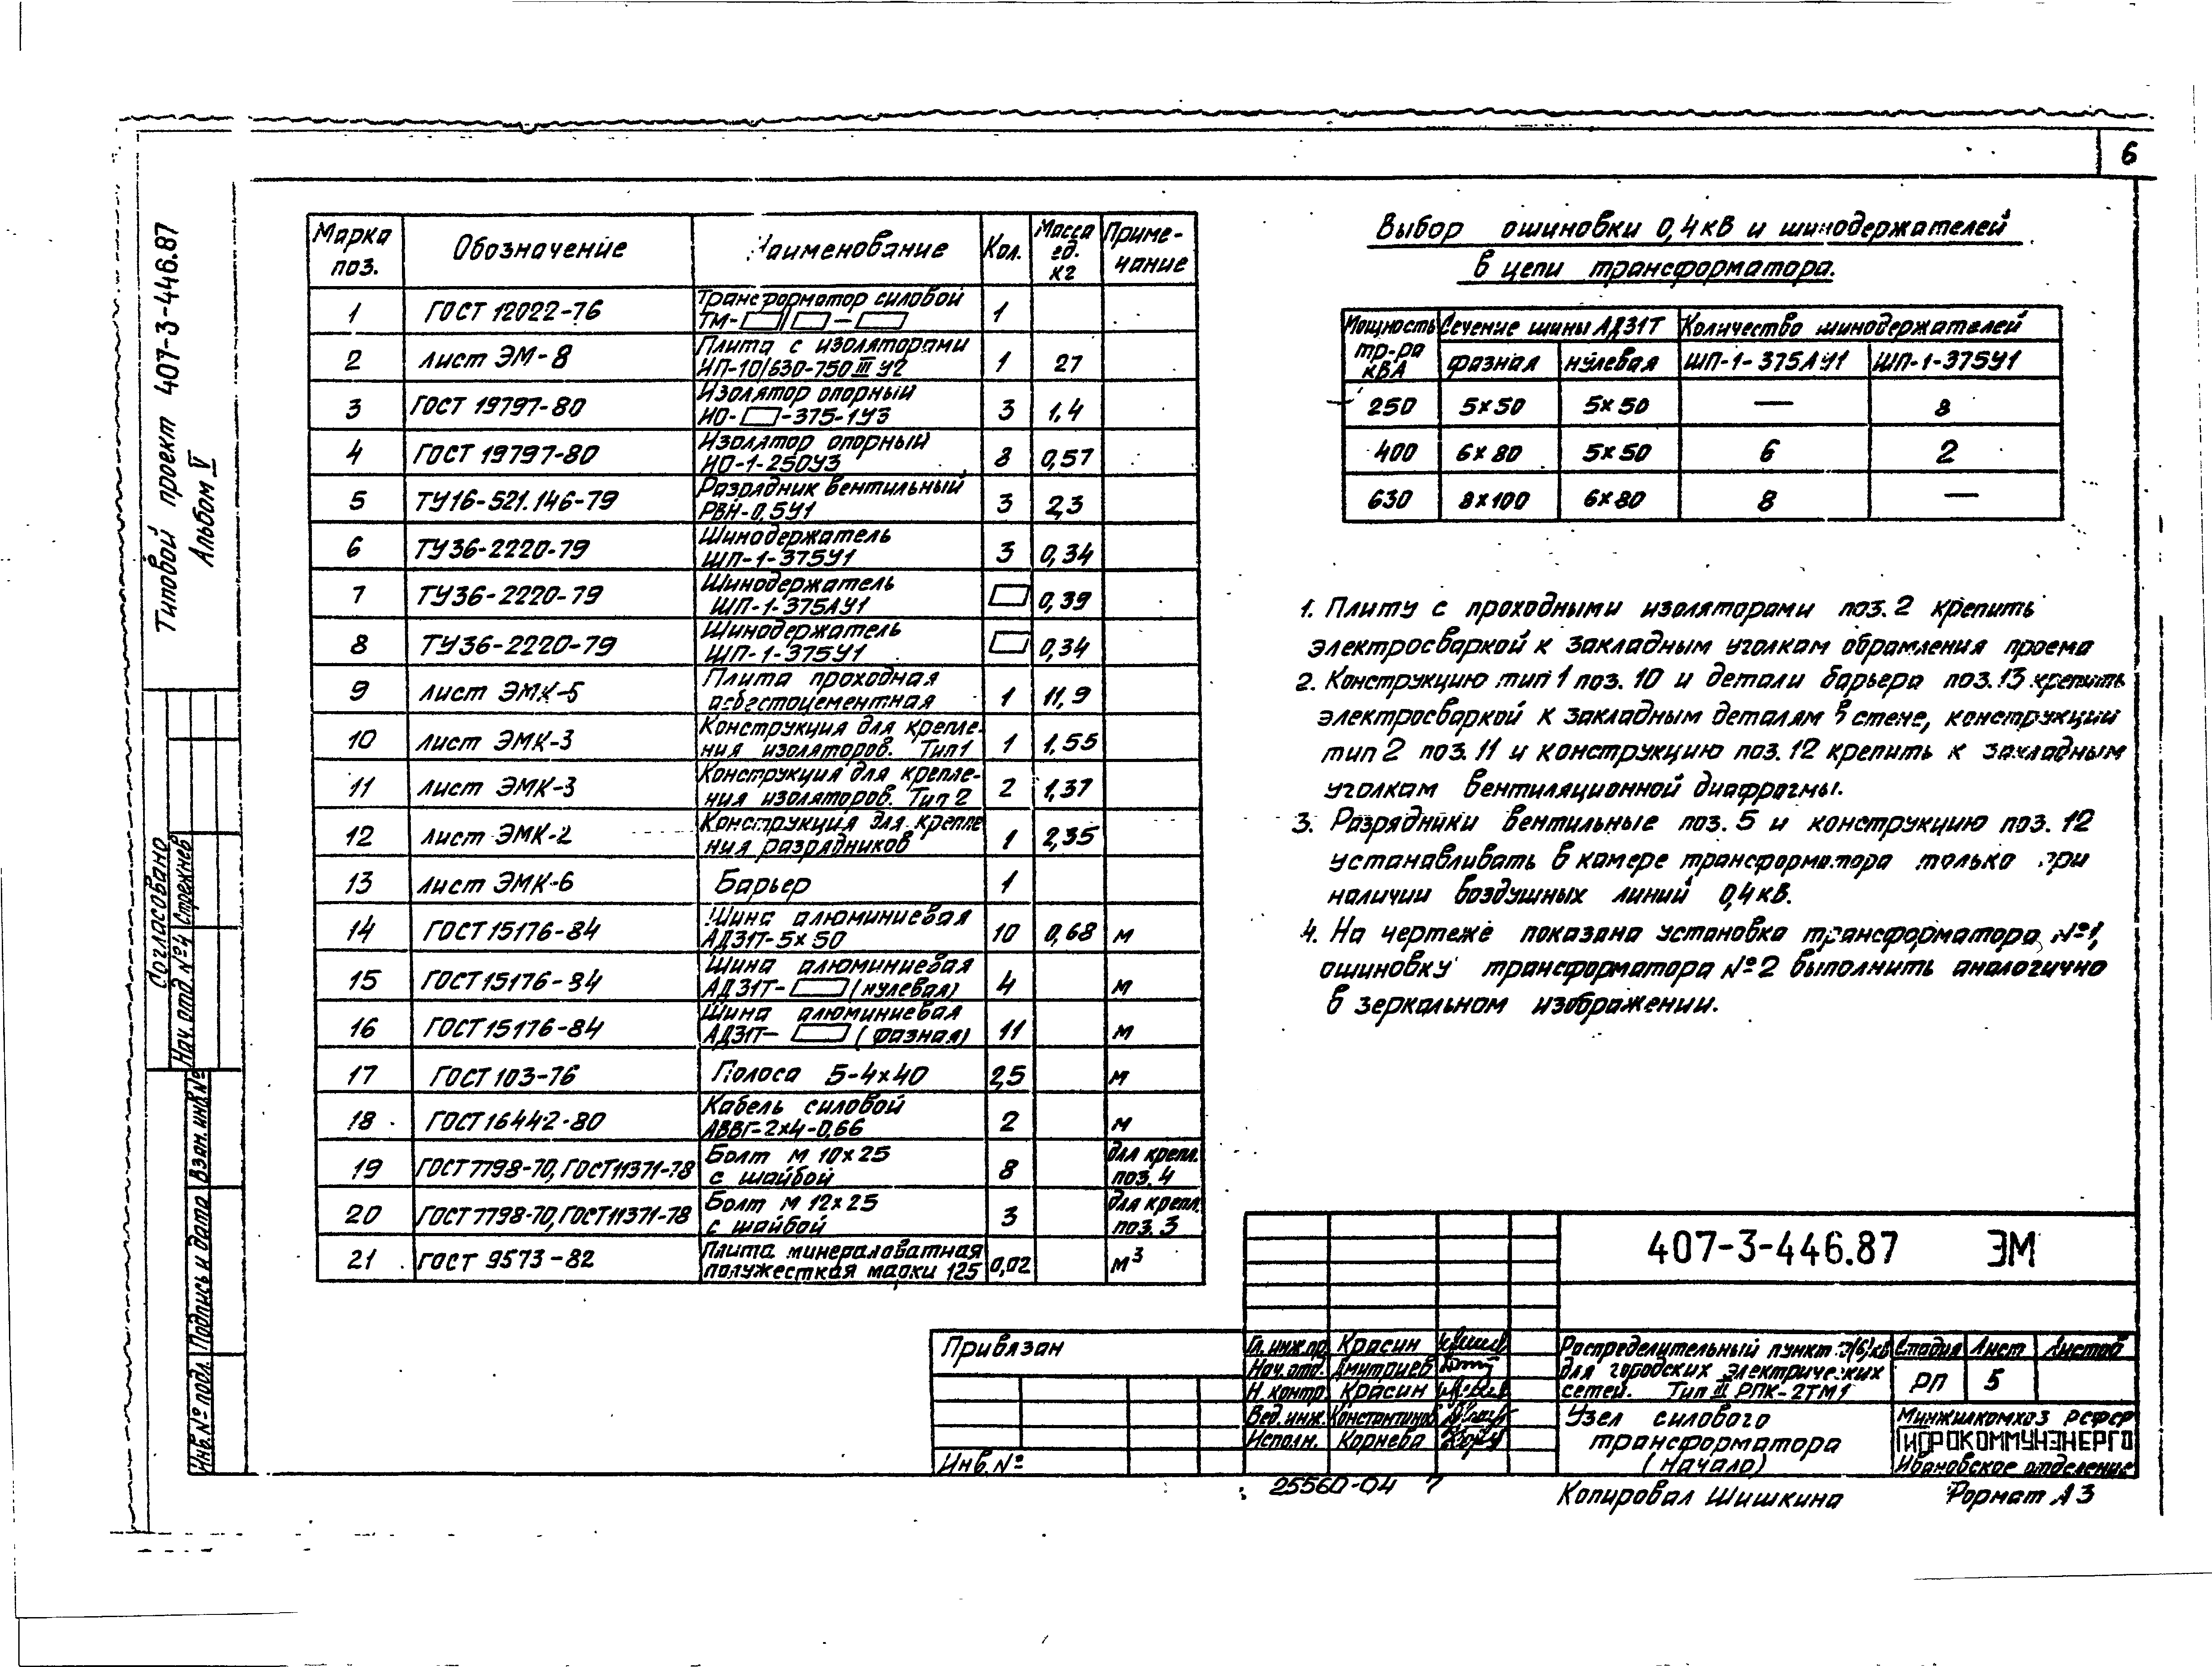 6
Типовой проект 407-3-446.87
Альбом V
Согласовано
Нач. отд. №4 Стрежнев
Взам. инв. №
Подпись и дата
Инв. № подл.
Марка поз. Обозначение Наименование Кол. Масса ед. кг Приме-чание
1 ГОСТ 12022-76 Трансформатор силовой 1
ТМ-▭/▭-▭
2 лист ЭМ-8 Плита с изоляторами 1 27
ИП-10/630-750 III У2
3 ГОСТ 19797-80 Изолятор опорный 3 1,4
ИО-▭-375-1У3
4 ГОСТ 19797-80 Изолятор опорный 8 0,57
ИО-1-250У3
5 ТУ16-521.146-79 Разрядник вентильный 3 2,3
РВН-0,5У1
6 ТУ36-2220-79 Шинодержатель 3 0,34
ШП-1-375У1
7 ТУ36-2220-79 Шинодержатель ▭ 0,39
ШП-1-375АУ1
8 ТУ36-2220-79 Шинодержатель ▭ 0,34
ШП-1-375У1
9 лист ЭМК-5 Плита проходная 1 11,9
асбестоцементная
10 лист ЭМК-3 Конструкция для крепле-
ния изоляторов. Тип 1 1 1,55
11 лист ЭМК-3 Конструкция для крепле-
ния изоляторов. Тип 2 2 1,37
12 лист ЭМК-2 Конструкция для крепле
ния разрядников 1 2,35
13 лист ЭМК-6 Барьер 1
14 ГОСТ 15176-84 Шина алюминиевая 10 0,68 м
АД31Т-5×50
15 ГОСТ 15176-84 Шина алюминиевая 4 м
АД31Т-▭ (нулевая)
16 ГОСТ 15176-84 Шина алюминиевая 11 м
АД31Т-▭ (фазная)
17 ГОСТ 103-76 Полоса 5-4×40 2,5 м
18 ГОСТ 16442-80 Кабель силовой 2 м
АВВГ-2×4-0,66
19 ГОСТ 7798-70, ГОСТ 11371-78 Болт М 10×25 8 для крепл.
с шайбой поз. 4
20 ГОСТ 7798-70, ГОСТ 11371-78 Болт М 12×25 3 для крепл.
с шайбой поз. 3
21 ГОСТ 9573-82 Плита минераловатная
полужесткая марки 125 0,02 м³
Выбор ошиновки 0,4 кВ и шинодержателей
в цепи трансформатора.
Мощность тр-ра кВА Сечение шины АД31Т Количество шинодержателей
фазная нулевая ШП-1-375АУ1 ШП-1-375У1
250 5×50 5×50 — 8
400 6×80 5×50 6 2
630 8×100 6×80 8 —
1. Плиту с проходными изоляторами поз. 2 крепить
электросваркой к закладным уголкам обрамления проема
2. Конструкцию тип 1 поз. 10 и детали барьера поз. 13 крепить
электросваркой к закладным деталям в стене, конструкции
тип 2 поз. 11 и конструкцию поз. 12 крепить к закладным
уголкам вентиляционной диафрагмы.
3. Разрядники вентильные поз. 5 и конструкцию поз. 12
устанавливать в камере трансформатора только при
наличии воздушных линий 0,4 кВ.
4. На чертеже показана установка трансформатора №1,
ошиновку трансформатора №2 выполнить аналогично
в зеркальном изображении.
407-3-446.87 ЭМ
Привязан
Инв. №
Гл. инж. пр. Красин
Нач. отд. Дмитриев
Н. контр. Красин
Вед. инж. Константинов
Исполн. Корнева
Распределительный пункт (6) кВ
для городских электрических
сетей. Тип III РПК-2ТМ1
Стадия Лист Листов
РП 5
Узел силового
трансформатора
(Начало)
Минжилкомхоз РСФСР
ГИПРОКОММУНЭНЕРГО
Ивановское отделение
25560-04 7
Копировал Шишкина
Формат А3